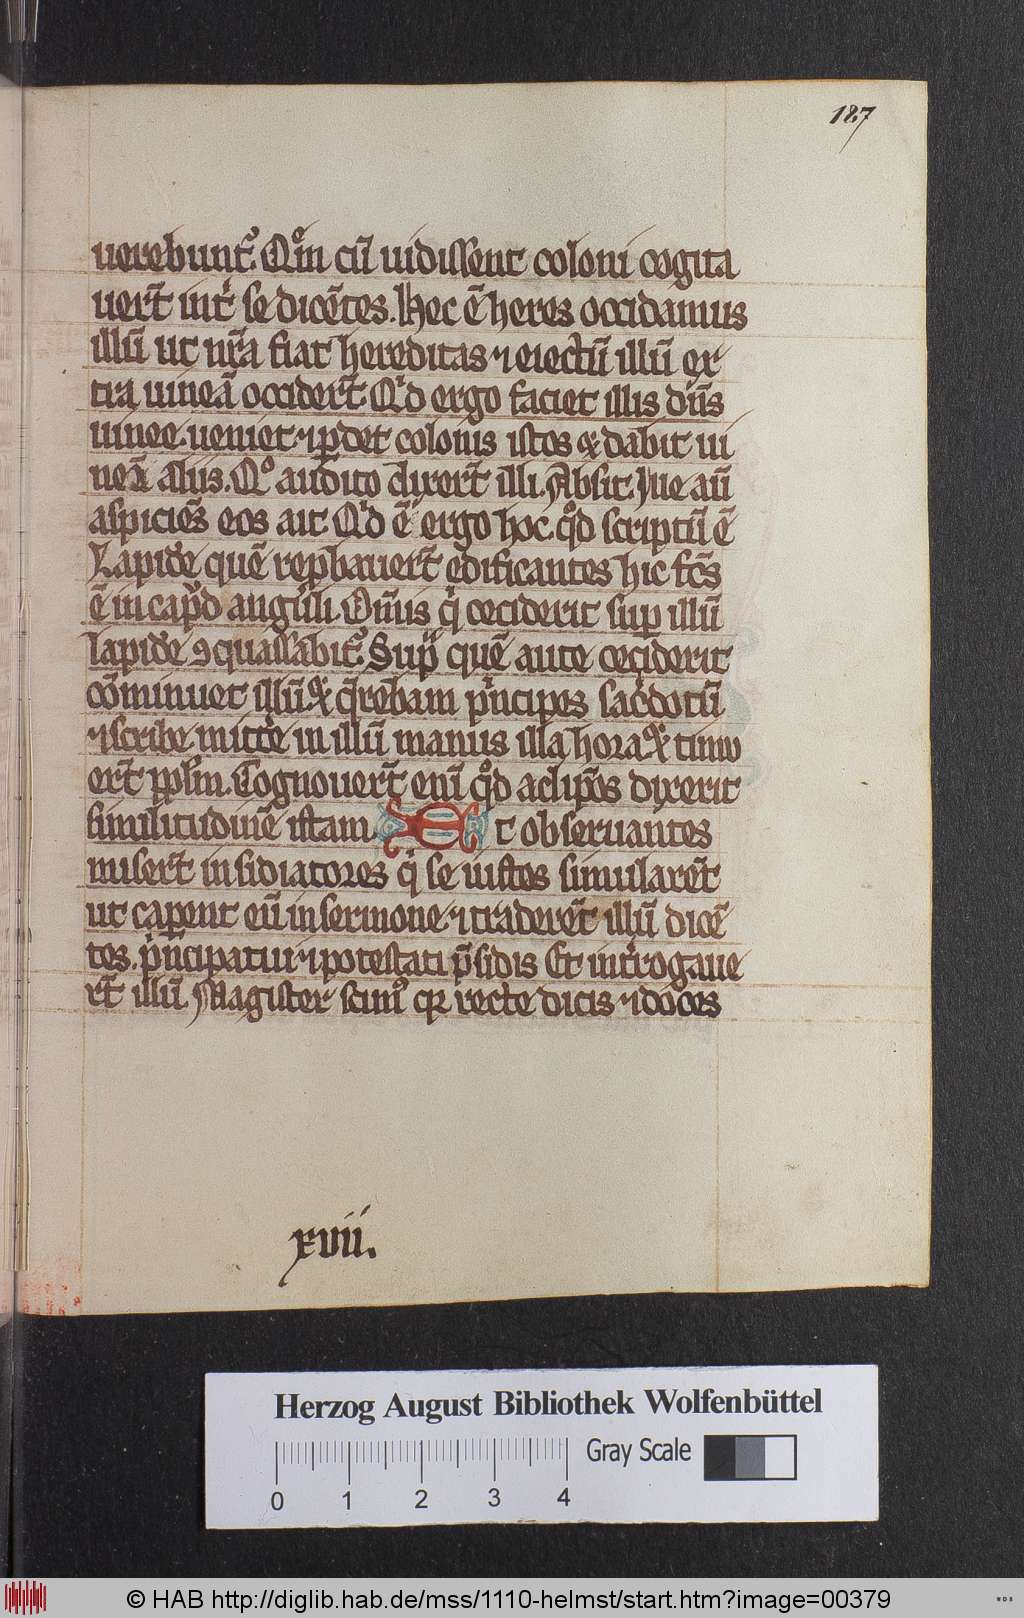 187
uerebuntᷣ. Qͦm cū uidissent coloni cogita
uert̄ int̾ se dicētes. Hec ē heres occidamus
illū ut nr̄a fiat hereditas ⁊ eiectū illū ex
tra uineā occidert̄. Qͥd ergo faciet illis dn̄s
uinee. ueniet ⁊ ꝑdet colonis istos ⁊ dabit ui
neā aliis. Qͦ audito dixert̄ illi. Absit. Ille aū
aspiciēs eos ait. Qͥd ē ergo hoc. qͦd scriptū ē
Lapidē quē reꝓbauert̄ edificantes hic fc̄s
ē in capͧd anguli. Om̄is qͥ ceciderit suꝑ illū
lapidē ꝯquassabitᷣ. Supͣ quē aute ceciderit
cōminuet illū. ⁊ qͣrebam pͥncipes sac̾dotū
⁊ scribe. mitte̾ in illū manus illa hora. ⁊ timu
ert̄ pplm̄. Cognouert̄ enī qͦd ad ip̄os dixerit
similitudinē istam. Et obseruantes
misert̄ insidiatores qͥ se iustos simularēt
ut caꝑent eū in sermone. ⁊ traderēt illū dicē
tes. pͥncipatui ⁊ potestati p̄sidis Et int̾rogaue
rt̄ illū. Magister scimᷣ qꝛ recte dicis ⁊ doces
xvii.
Herzog August Bibliothek Wolfenbüttel
Gray Scale
0 1 2 3 4
© HAB http://diglib.hab.de/mss/1110-helmst/start.htm?image=00379